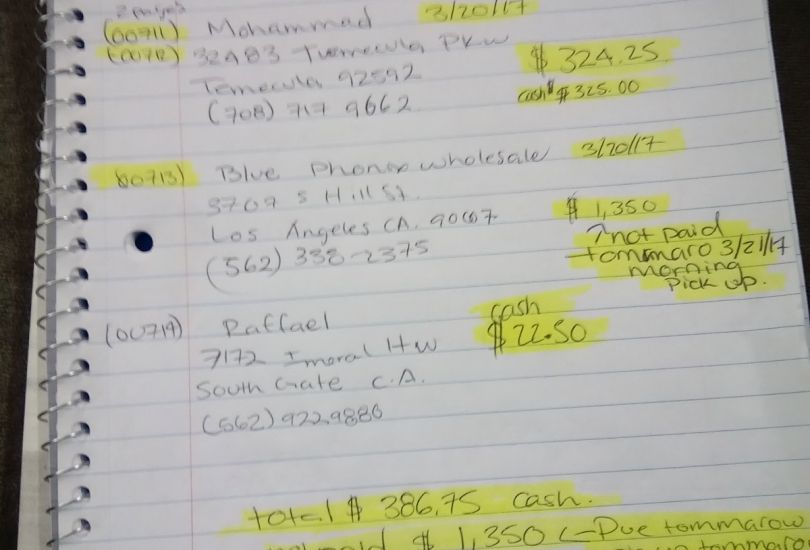 2 pages
(00711) Mohammad 3/20/17
(00712) 32483 Tuemecula PKW $324.25
Temecula 92592
cash $325.00
(708) 717 9662
00713) Blue Phonex wholesale 3/20/17
3707 S Hill St. $1,350
Los Angeles CA. 90007
not paid
(562) 338-2375 tommaro 3/21/17
morning
Pick up.
(00714) Raffael cash
7172 Imoral Hw $22.50
South Gate C.A.
(562) 922 9886
total $386.75 cash.
$1,350 <-Due tommarow